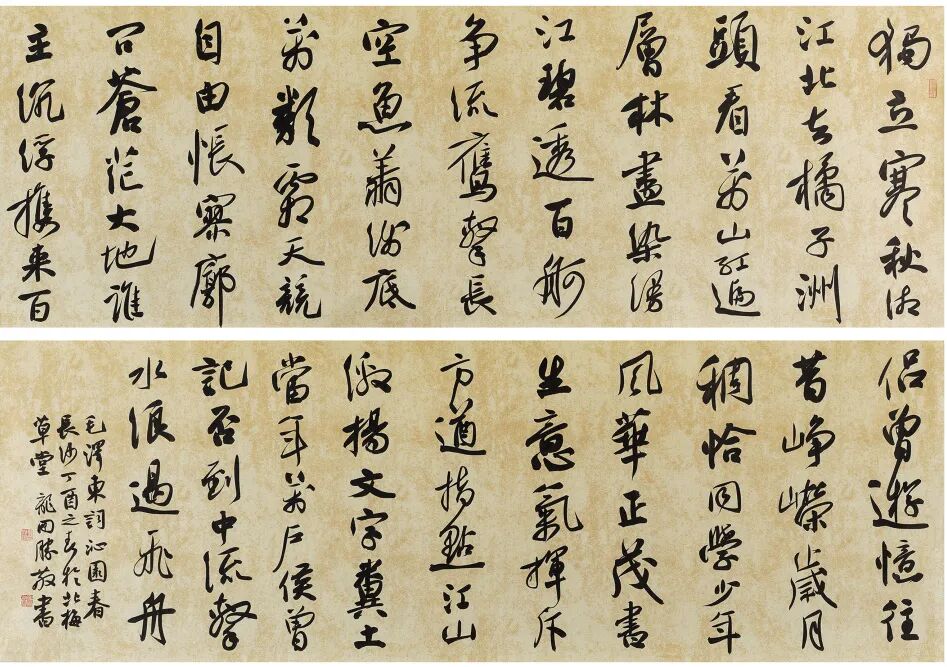 獨立寒秋湘
江北去橘子洲
頭看萬山紅遍
層林盡染漫
江碧透百舸
争流鷹擊長
空魚翔淺底
萬類霜天競
自由悵寥廓
問蒼茫大地誰
主沉浮携來百
侣曾遊憶往
昔崢嶸歲月
稠恰同學少年
風華正茂書
生意氣揮斥
方遒指點江山
激揚文字糞土
當年萬戶侯曾
記否到中流擊
水浪遏飛舟
毛澤東詞沁園春
長沙丁酉之春於北梅
草堂龍勝敬書